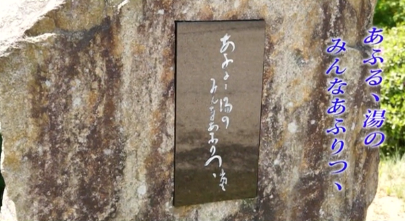 あふるゝ湯の
みんなあふりつゝ
あふるゝ湯の
みんなあふりつゝ